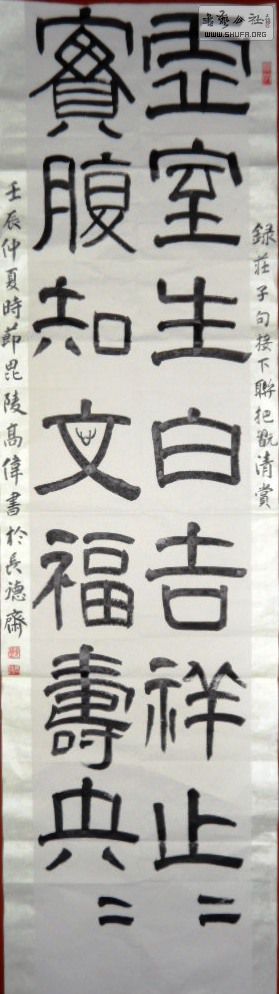 書藝公社
WWW.SHUFA.ORG
録莊子句接下聯把翫清賞
虚室生白吉祥止二
實腹知文福壽央二
壬辰仲夏時節毘陵高偉書於長德齋